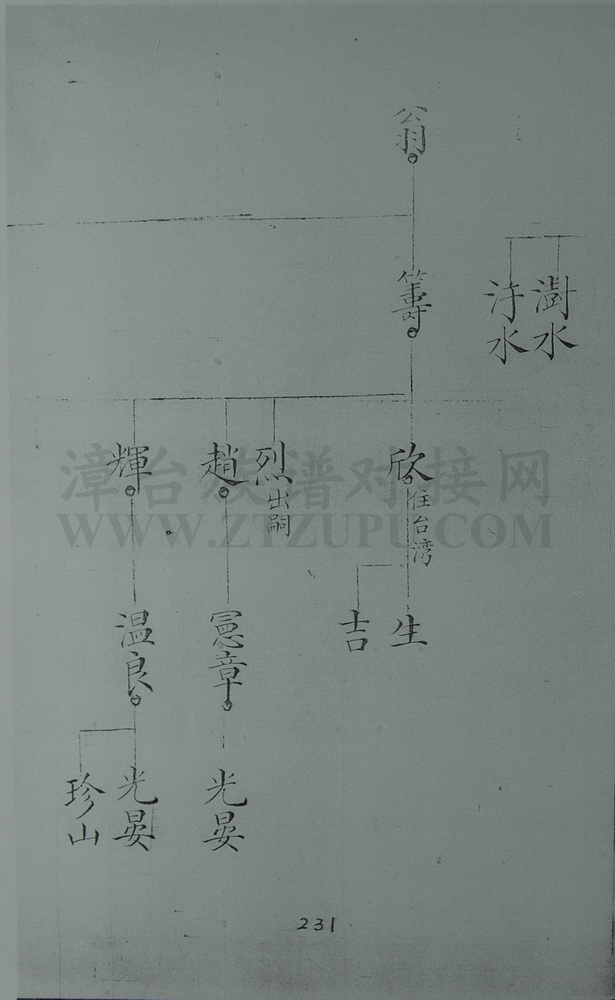 澍水
汿水
翁
籌
欣
往台湾
烈
出嗣
趙
輝
生
吉
憲章
温良
光晏
光晏
珍山
漳台族谱对接网
WWW.ZTZUPU.COM
231